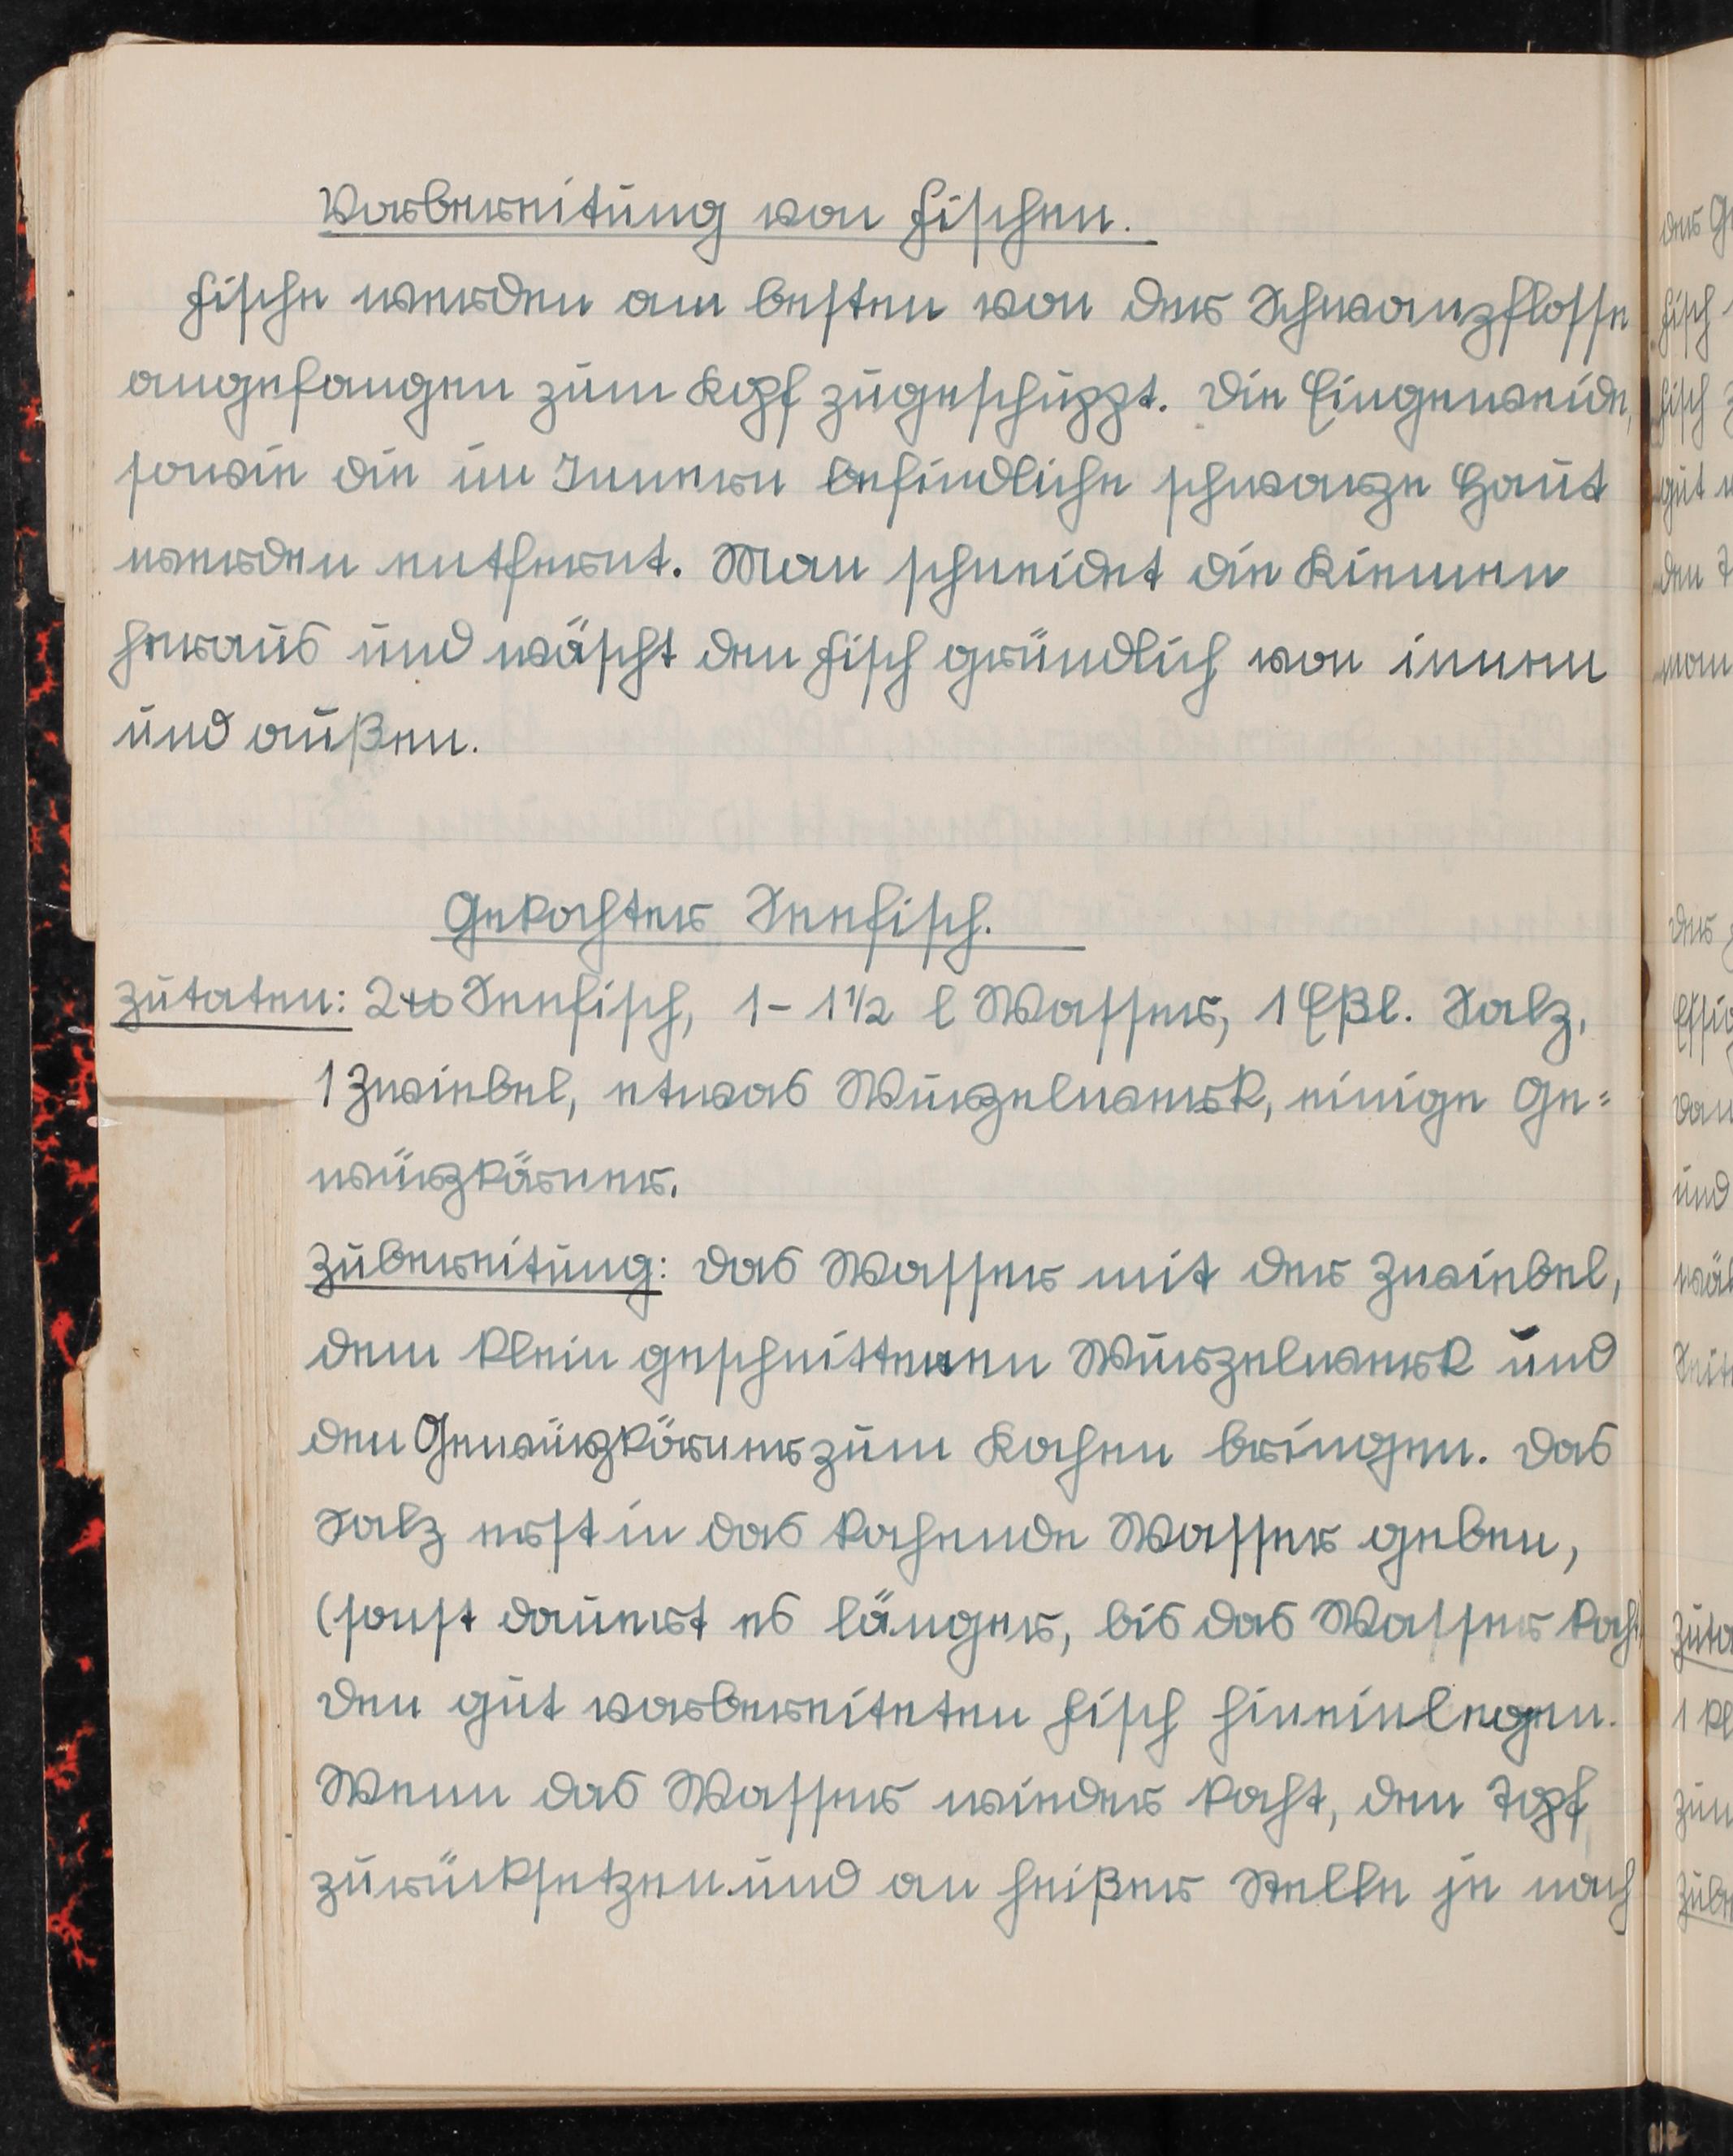 Vorbereitung von Fischen.
Fische werden am besten von der Schwanzflosse
angefangen zum Kopf zugeschuppt. Die Eingeweide,
sowie die im Innern befindliche schwarze Haut
werden entfernt. Man schneidet die Kiemen
heraus und wäscht den Fisch gründlich von innen
und außen.
Gekochter Seefisch.
Zutaten: 2 ℔ Seefisch, 1-1½ l Wasser, 1 Eßl. Salz,
1 Zwiebel, etwas Wurzelwerk, einige Ge=
würzkörner.
Zubereitung: Das Wasser mit der Zwiebel,
dem klein geschnittenen Wurzelwerk und
den Gewürzkörner zum Kochen bringen. Das
Salz erst in das kochende Wasser geben,
(sonst dauert es länger, bis das Wasser kocht
Den gut vorbereiteten Fisch hineinlegen.
Wenn das Wasser wieder kocht, den Topf
zurücksetzen und an heißer Stelle je nach